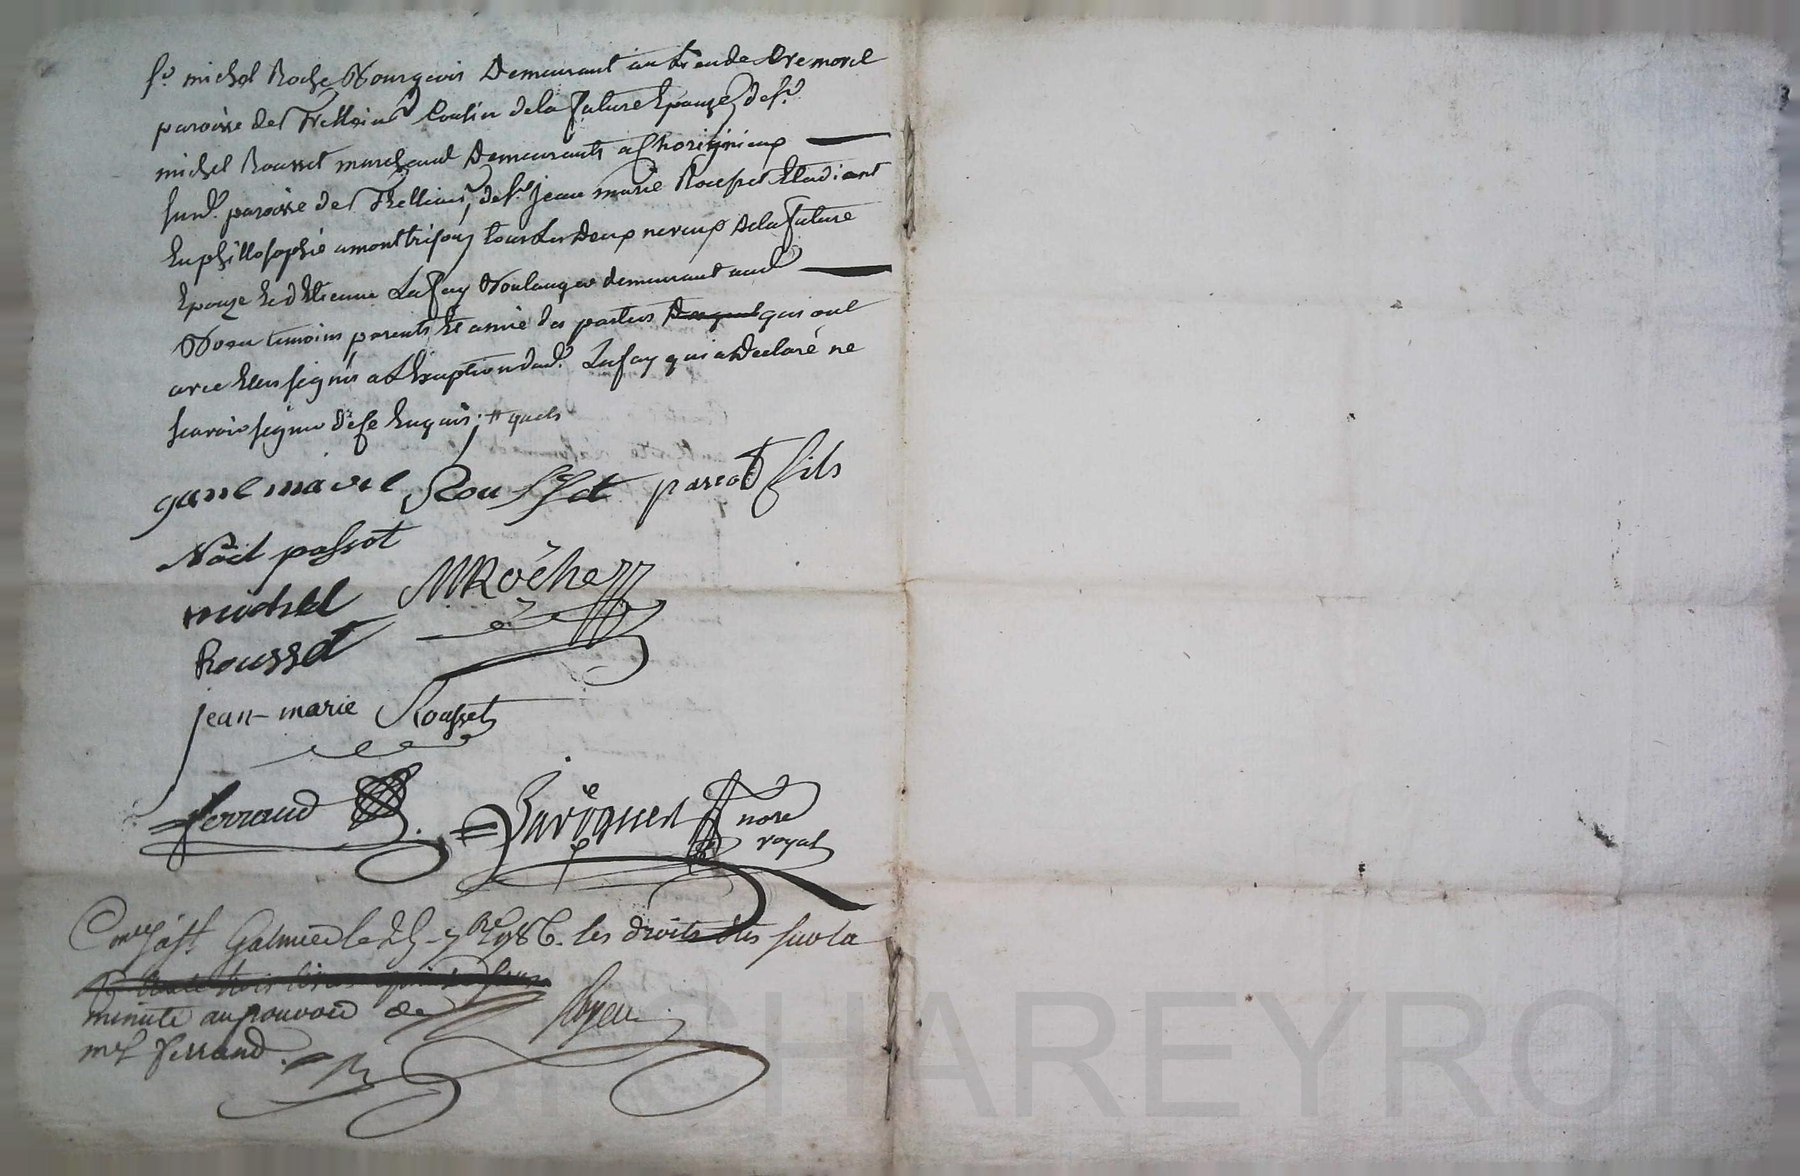 Sr. michel Roche Bourgeois Demeurant au Lieu de Cremorel
paroisse de Trelleins Cousin de la future Epouze, de Sr.
michel Rousset marchand Demeurants a
Susd. paroisse de Trelleins, de Sr. Jean marie Rousset Etudiant
En phillosophie a montbrison tous les Deux neveux De la future
Epouze Et d'Etienne Lafay Boulanger demeurant aud.
Boen temoins parents Et amis des parties qui ont
avec Elles signés a L'Exeption dud. Lafay qui a Declaré ne
scavoir signer de ce Enquis; # quels
marie Rousset fils
Noël passot
michel MRoche
Rousset
jean-marie Rousset
ferraud nore
royal
Conlle a St. Galmier le 25 7bre 1786. les droits dus sur la
minute au pouvoir de
me ferraud.
CHAREYRON